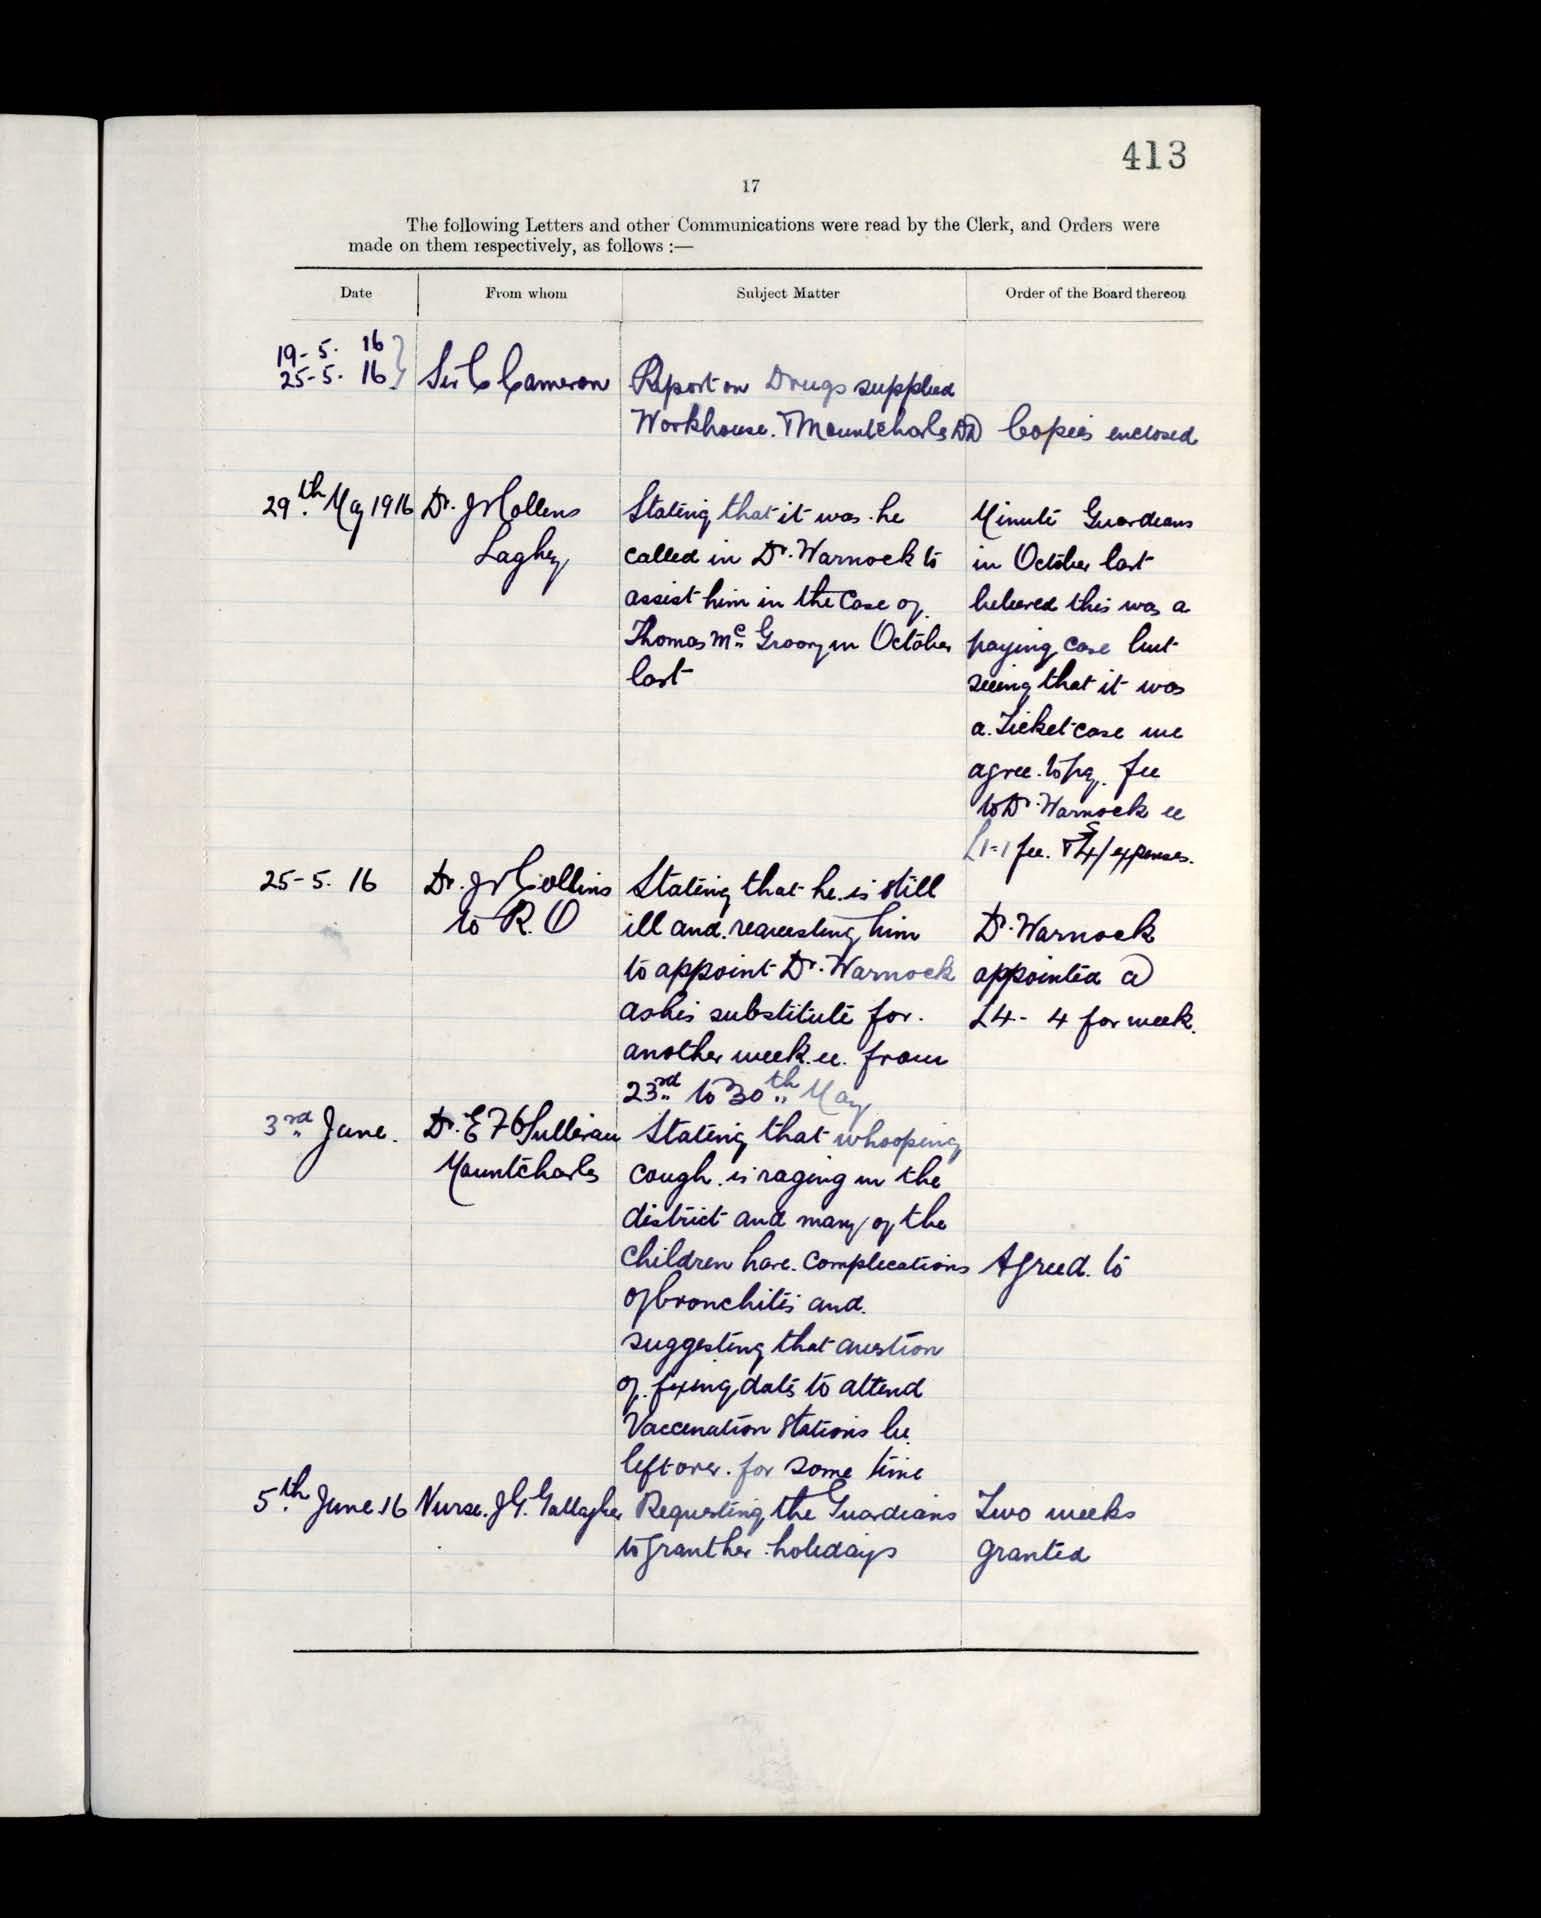 413
17
The following Letters and other Communications were read by the Clerk, and Orders were
made on them respectively, as follows :—
Date From whom Subject Matter Order of the Board thereon
19-5. 16
25-5. 16 } Sir C Cameron Report on Drugs supplied
Workhouse. & Mountcharles DD Copies enclosed
29th. May 1916 Dr. J Collens Stating that it was he Minute Guardians
Laghey called in Dr. Warnock to in October last
assist him in the case of believed this was a
Thomas Mc Groory in October paying case but
last seeing that it was
a Ticket case we
agree to pay fee
to Dr. Warnock ie
£1-1 fee. & 4s/ expenses.
25-5. 16 Dr. J Collins Stating that he is still
to R. O ill and requesting him Dr. Warnock
to appoint Dr. Warnock appointed @
as his substitute for £4- 4 for week.
another week ie. from
23rd to 30th May
3rd June. Dr. E F OSullivan Stating that whooping
Mountcharles cough is raging in the
district and many of the
children have complications Agreed to
of bronchitis and
suggesting that question
of fixing dates to attend
Vaccination Stations be
left over for some time
5th June 16 Nurse J G. Gallagher Requesting the Guardians Two weeks
to grant her holidays granted